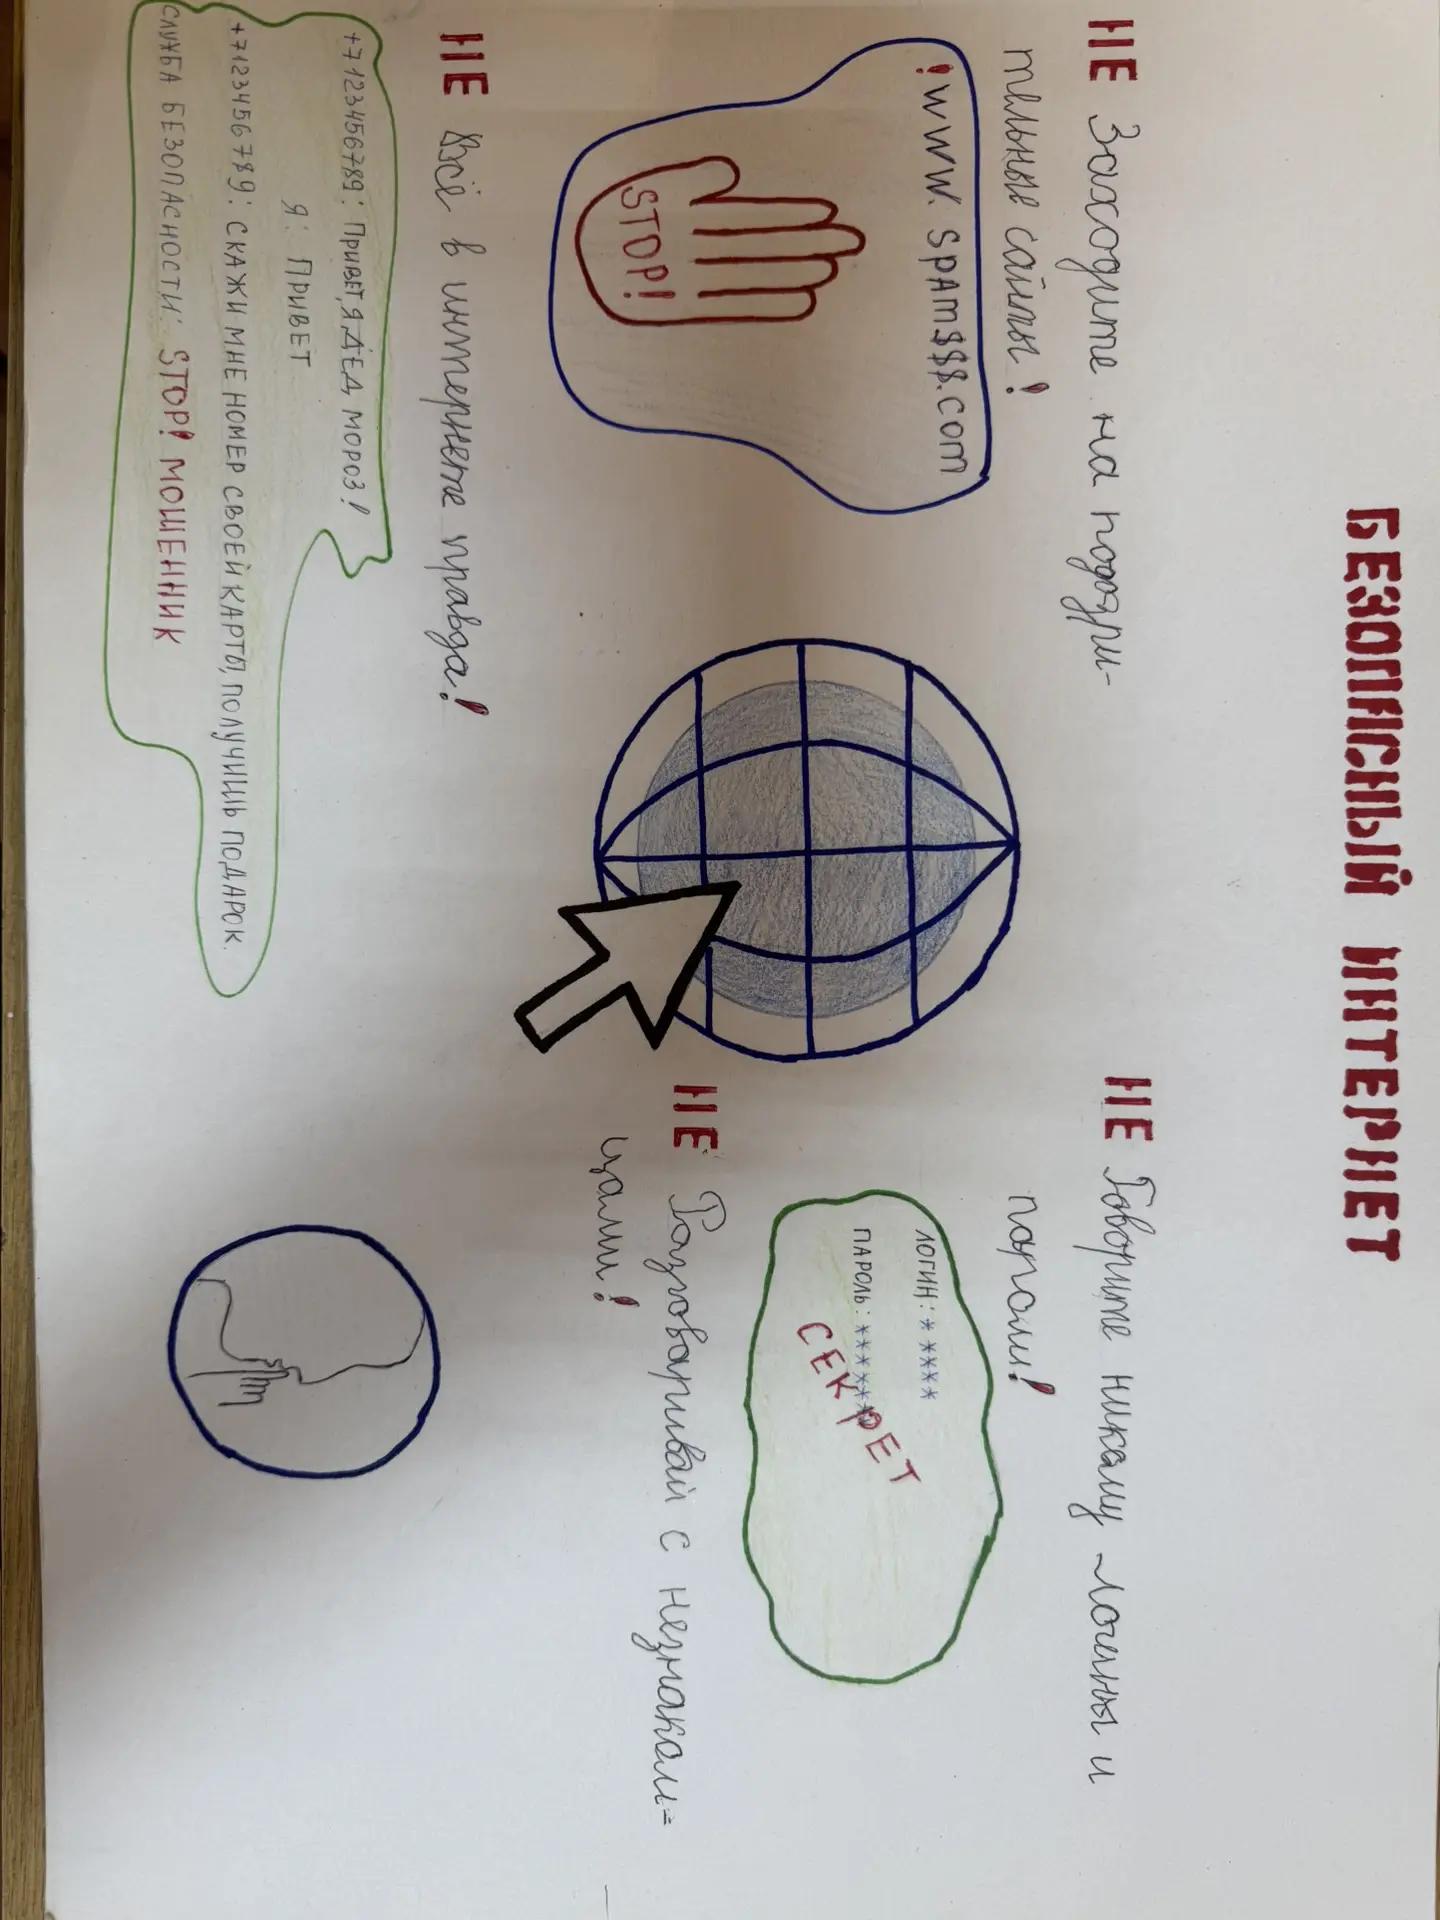 БЕЗОПАСНЫЙ ИНТЕРНЕТ
НЕ Заходите на подозри-
тельные сайты!
! www. spam$$$.com
STOP!
НЕ Всё в интернете правда!
+7123456789: ПРИВЕТ, Я ДЕД МОРОЗ!
Я: ПРИВЕТ
+7123456789: СКАЖИ МНЕ НОМЕР СВОЕЙ КАРТЫ, ПОЛУЧИШЬ ПОДАРОК.
СЛУЖБА БЕЗОПАСНОСТИ: STOP! МОШЕННИК
НЕ Говорите никому логины и
пороли!
ЛОГИН: *****
ПАРОЛЬ: *******
СЕКРЕТ
НЕ Разговаривай с незнаком=
цами!